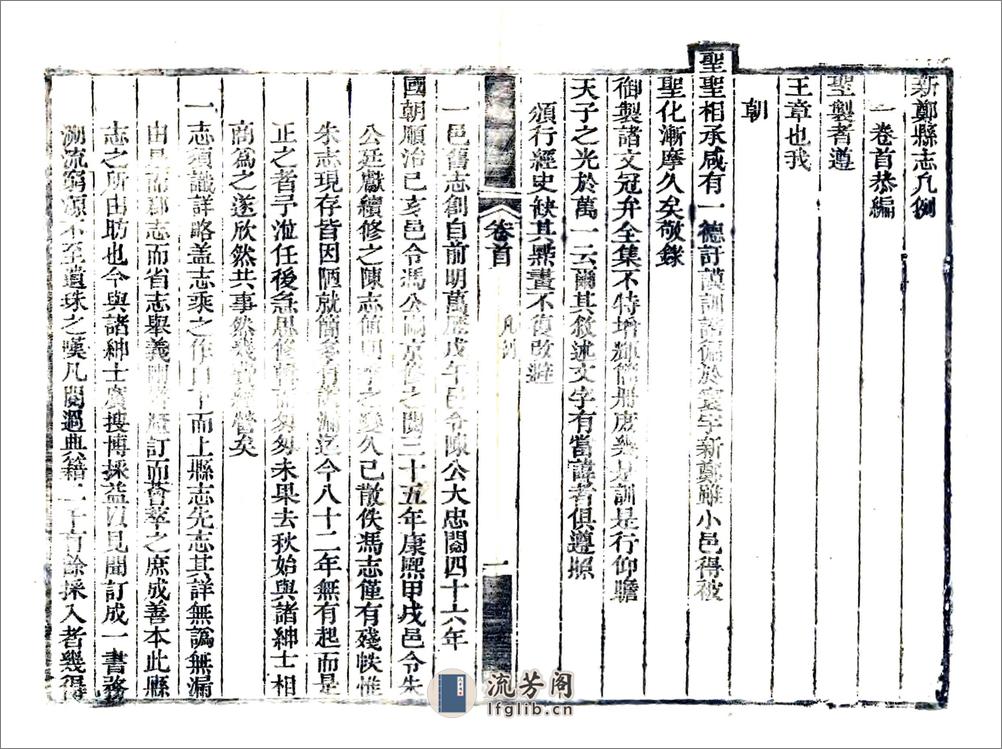 新鄭縣志凡例
一卷首恭編
聖製者遵
王章也我
朝
聖聖相承咸有一德訏謨訓誥徧於寰宇新鄭雖小邑得被
聖化漸摩久矣敬錄
御製諸文冠弁全集不特增輝簡册庶幾是訓是行仰瞻
天子之光於萬一云爾其敘述文字有當諱者俱遵照
頒行經史缺其點畫不復改避
卷首
凡例
一
一邑舊志創自前明萬歷戊午邑令陳公大忠閱四十六年
國朝順治己亥邑令馮公嗣京修之閱三十五年康熙甲戌邑令朱
公廷獻續修之陳志簡明久已散佚馮志僅有殘帙惟
朱志現存皆因陋就簡多有訛漏迄今八十二年無有起而是
正之者予涖任後急思修輯而匆匆未果去秋始與諸紳士相
商爲之遂欣然共事然幾費經營矣
一志須識詳略盖志乘之作自下而上縣志先志其詳無譌無漏
由是而郡志而省志舉義訂而薈萃之庶成善本此縣
志之所由昉也今與諸紳士廣搜博採益以見聞訂成一書務
溯流窮源不至遺珠之嘆凡閱過典籍二十有餘採入者幾得
流芳阁
lfglib.cn